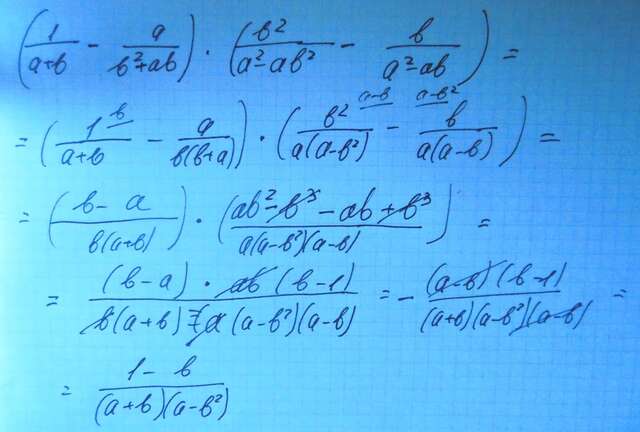 (1/(a+b) - a/(b²+ab)) · (b²/(a²-ab²) - b/(a²-ab)) =
= (1^b/(a+b) - a/(b(b+a))) · (b²^(a-b)/(a(a-b²)) - b^(a-b²)/(a(a-b))) =
= ((b-a)/(b(a+b))) · ((ab²-b³-ab+b³)/(a(a-b²)(a-b))) =
= ((b-a) · ab(b-1))/(b(a+b) · a(a-b²)(a-b)) = - ((a-b)(b-1))/((a+b)(a-b²)(a-b)) =
= (1-b)/((a+b)(a-b²))